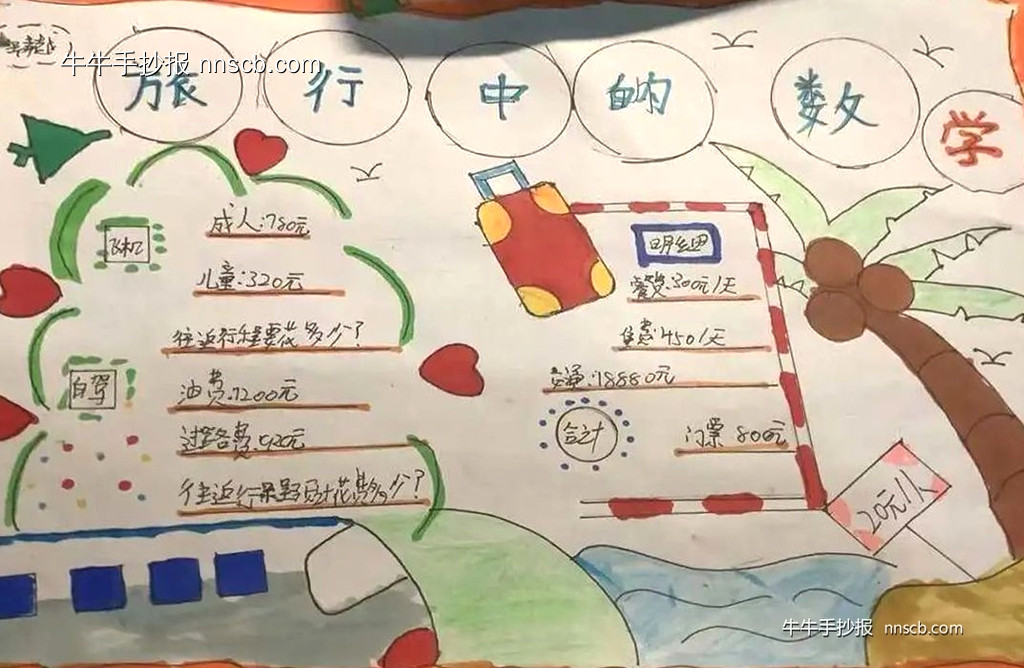 牛牛手抄报 nnscb.com
旅行中的数学
飞机
成人:780元
儿童:320元
往返行程要花多少?
自驾
油费:1200元
过路费:920元
往返行程路费花费多少?
明细
餐费:300元/天
住费:450/天
交通:18880元
合计
门票 800元
20元/人
牛牛手抄报 nnscb.com